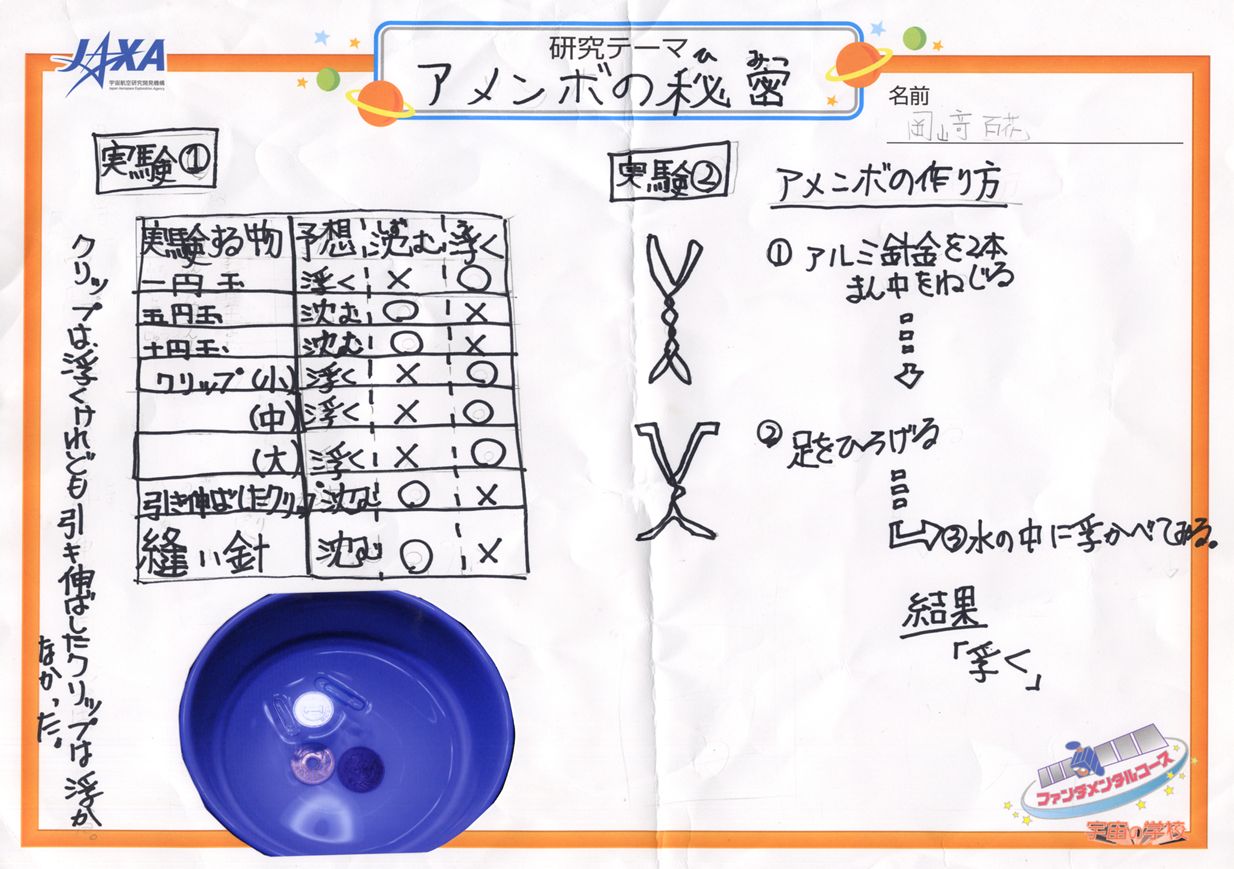 JAXA
宇宙航空研究開発機構
Japan Aerospace Exploration Agency
研究テーマ
ひ みつ
アメンボの秘密
名前
岡﨑 百花
実験①
実験する物 予想 沈む 浮く
しず
一円玉 浮く × ○
五円玉 沈む ○ ×
十円玉 沈む ○ ×
クリップ(小) 浮く × ○
(中) 浮く × ○
(大) 浮く × ○
引き伸ばしたクリップ 沈む ○ ×
縫い針 沈む ○ ×
クリップは、浮くけれども引き伸ばしたクリップは浮か
なかった。
実験②
アメンボの作り方
① アルミ針金を2本
まん中をねじる
② 足をひろげる
③水の中に浮かべてみる。
結果
「浮く」
ファンダメンタルコース
宇宙の学校